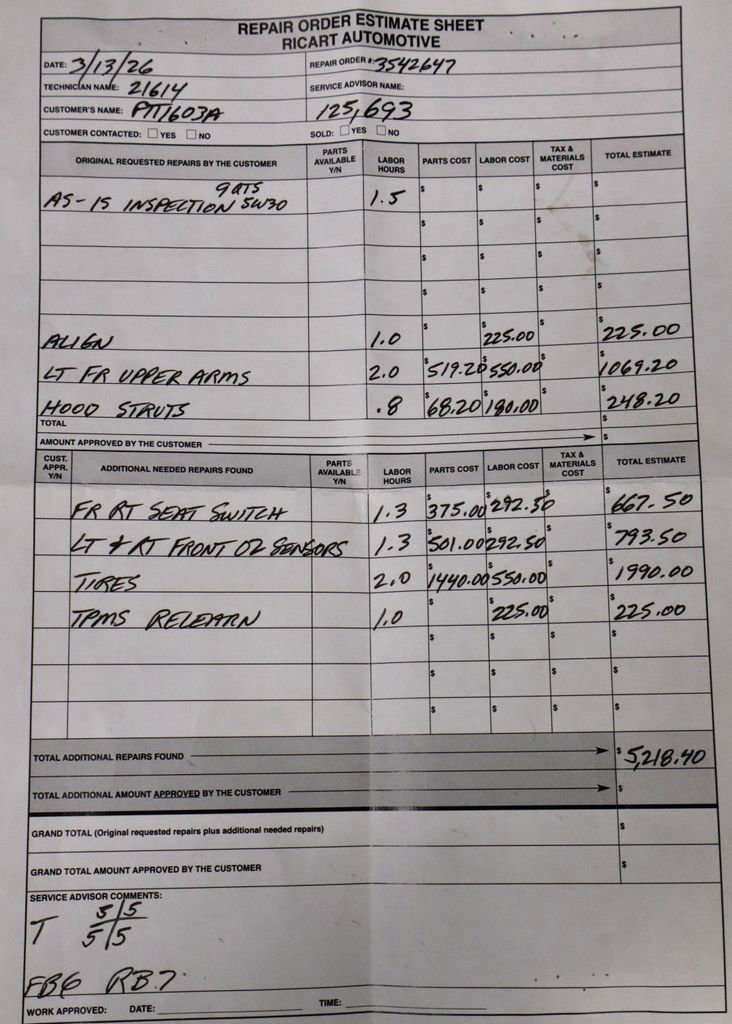 REPAIR ORDER ESTIMATE SHEET
RICART AUTOMOTIVE
DATE: 3/13/26 REPAIR ORDER #: 3542647
TECHNICIAN NAME: 21614 SERVICE ADVISOR NAME:
CUSTOMER'S NAME: PTT1603A 125,693
CUSTOMER CONTACTED: YES NO SOLD: YES NO
ORIGINAL REQUESTED REPAIRS BY THE CUSTOMER PARTS AVAILABLE Y/N LABOR HOURS PARTS COST LABOR COST TAX & MATERIALS COST TOTAL ESTIMATE
9 QTS
AS-IS INSPECTION 5W30 1.5 $ $ $ $
$ $ $ $
$ $ $ $
$ $ $ $
ALIGN 1.0 $ $225.00 $ $225.00
LT FR UPPER ARMS 2.0 $519.20 $550.00 $ $1069.20
HOOD STRUTS .8 $68.20 $180.00 $ $248.20
TOTAL $
AMOUNT APPROVED BY THE CUSTOMER $
CUST. APPR. Y/N ADDITIONAL NEEDED REPAIRS FOUND PARTS AVAILABLE Y/N LABOR HOURS PARTS COST LABOR COST TAX & MATERIALS COST TOTAL ESTIMATE
FR RT SEAT SWITCH 1.3 $375.00 $292.50 $ $667.50
LT & RT FRONT O2 SENSORS 1.3 $501.00 $292.50 $ $793.50
TIRES 2.0 $1440.00 $550.00 $ $1990.00
TPMS RELEARN 1.0 $ $225.00 $ $225.00
$ $ $ $
$ $ $ $
$ $ $ $
TOTAL ADDITIONAL REPAIRS FOUND $5,218.40
TOTAL ADDITIONAL AMOUNT APPROVED BY THE CUSTOMER $
GRAND TOTAL (Original requested repairs plus additional needed repairs) $
GRAND TOTAL AMOUNT APPROVED BY THE CUSTOMER $
SERVICE ADVISOR COMMENTS:
5/5
T 5/5
FB6 RB7
WORK APPROVED: DATE: TIME: